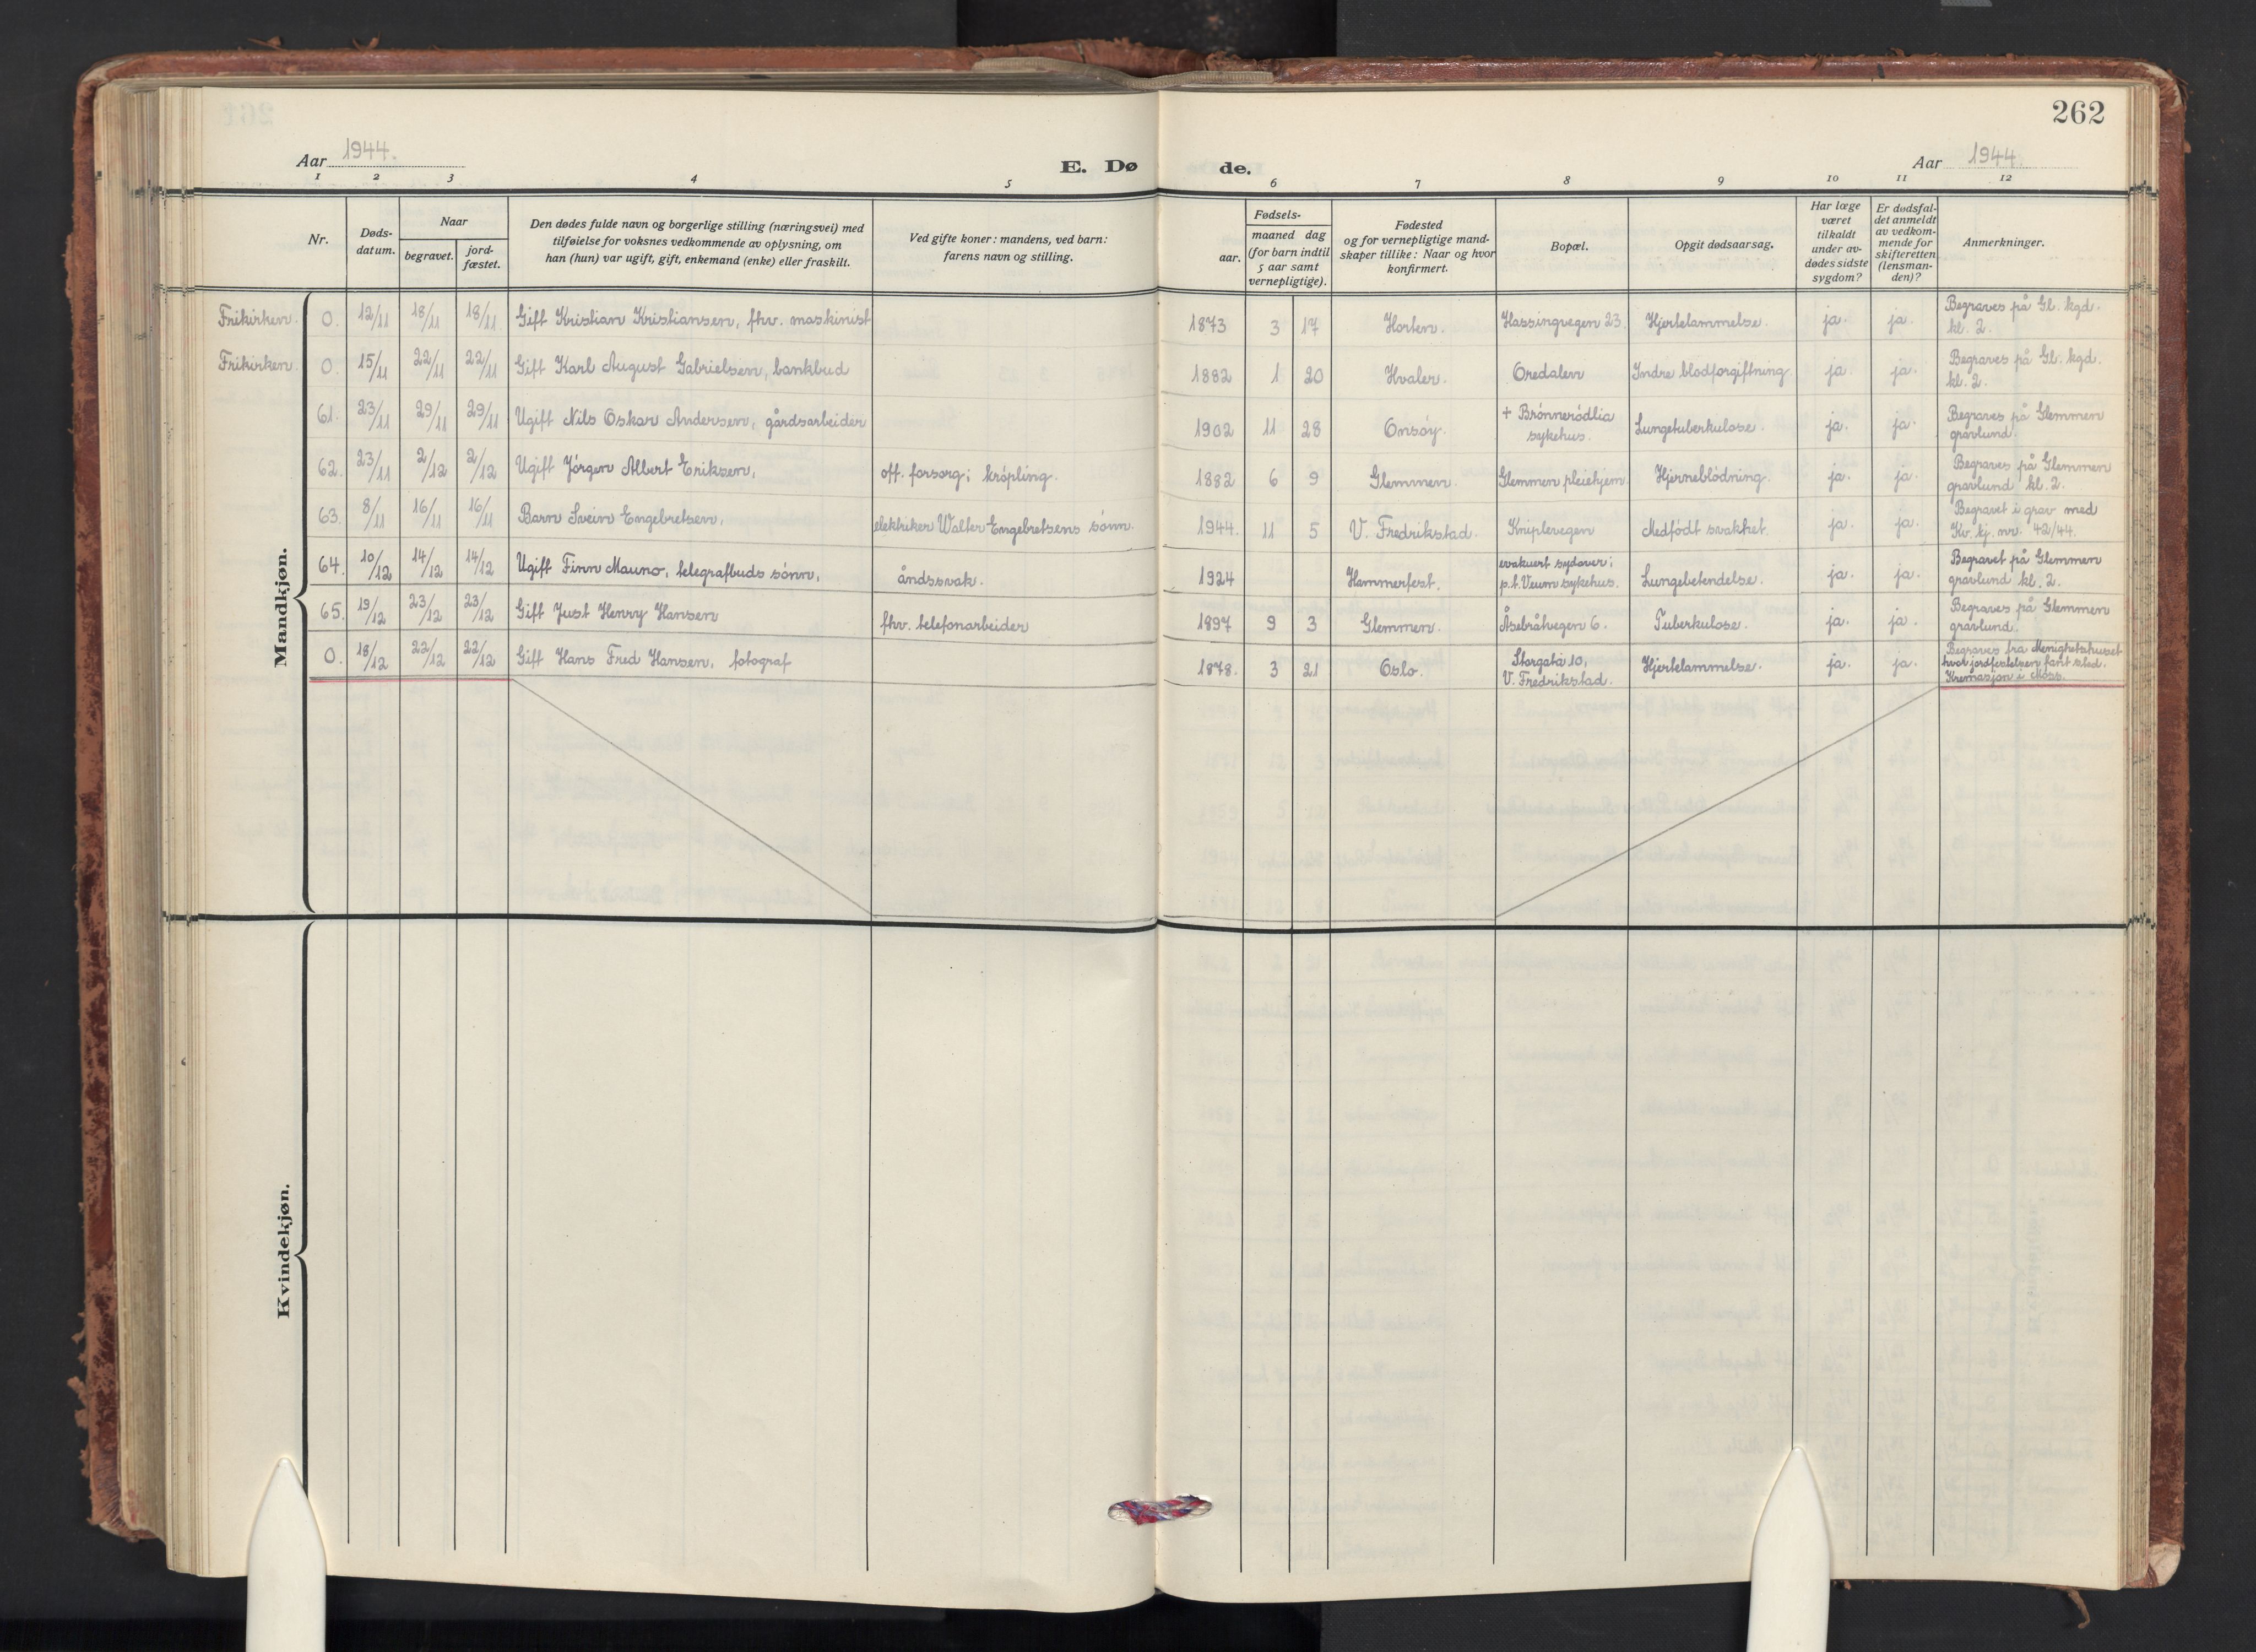 262
Aar 1944.
E. Dø de.
Aar 1944.
1 2 3 4 5 6 7 8 9 10 11 12
Nr.
Døds-
datum.
Naar
begravet.
jord-
fæstet.
Den dødes fulde navn og borgerlige stilling (næringsvei) med
tilføielse for voksnes vedkommende av oplysning, om
han (hun) var ugift, gift, enkemand (enke) eller fraskilt.
Ved gifte koner: mandens, ved barn:
farens navn og stilling.
Fødsels-
aar.
maaned dag
(for barn indtil
5 aar samt
vernepligtige).
Fødested
og for vernepligtige mand-
skaper tillike: Naar og hvor
konfirmert.
Bopæl.
Opgit dødsaarsag.
Har læge
været
tilkaldt
under av-
dødes sidste
sygdom?
Er dødsfal-
det anmeldt
av vedkom-
mende for
skifteretten
(lensman-
den)?
Anmerkninger.
Mandkjøn.
Frikirken. 0. 12/11 18/11 18/11 Gift Kristian Kristiansen, fhv. maskinist 1873 3 17 Horten. Hassingvegen 23. Hjertelammelse. ja. ja. Begraves på Gl. kgd.
kl. 2.
Frikirken 0. 15/11 22/11 22/11 Gift Karl August Gabrielsen, bankbud 1882 1 20 Hvaler. Oredalen Indre blodforgiftning. ja. ja. Begraves på Gl. kgd.
kl. 2.
61. 23/11 29/11 29/11 Ugift Nils Oskar Andersen, gårdsarbeider 1902 11 28 Onsöy. + Brönnerödlia
sykehus. Lungetuberkulose. ja. ja. Begraves på Glemmen
gravlund.
62. 23/11 2/12 2/12 Ugift Jörgen Albert Eriksen, off. forsorg; kröpling. 1882 6 9 Glemmen. Glemmen pleiehjem Hjerneblödning. ja. ja. Begraves på Glemmen
gravlund kl. 2.
63. 8/11 16/11 16/11 Barn Svein Engebretsen, elektriker Walter Engebretsens sönn. 1944. 11 5 V. Fredrikstad. Kniplevegen Medfödt svakhet. ja. ja. Begravet i grav med
Kv. kj. nr. 42/44.
64. 10/12 14/12 14/12 Ugift Finn Mauno, telegrafbuds sönn, åndssvak. 1924 Hammerfest. evakuert sydover;
p.t. Veum sykehus. Lungebetendelse. ja. ja. Begravet på Glemmen
gravlund kl. 2.
65. 19/12 23/12 23/12 Gift Just Henry Hansen fhv. telefonarbeider 1897 9 3 Glemmen. Åsebråtvegen 6. Tuberkulose. ja. ja. Begraves på Glemmen
gravlund.
0. 18/12 22/12 22/12 Gift Hans Fred Hansen, fotograf 1878. 3 21 Oslo. Storgata 10,
V. Fredrikstad. Hjertelammelse. ja. ja. Begraves fra Menighetshuset
hvor jordfestelsen fant sted.
Kremasjon i Moss.
Kvindekjøn.